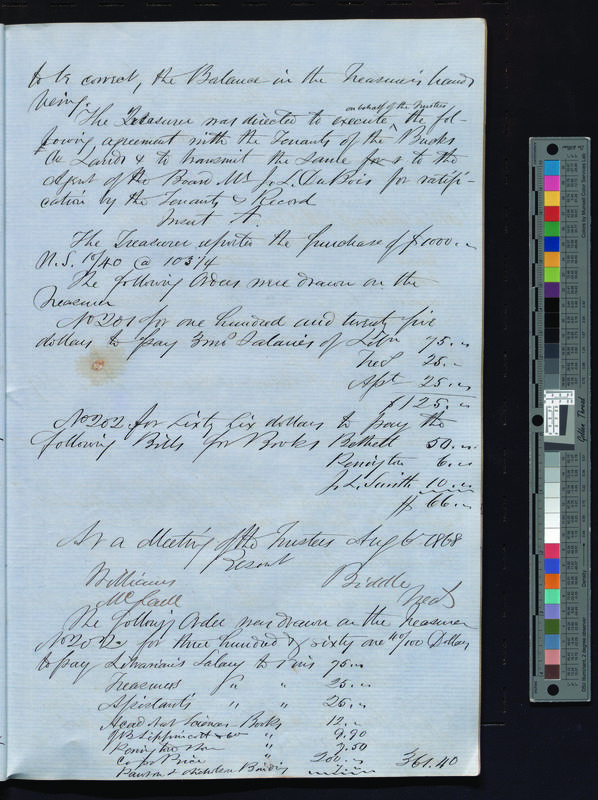 to be correct, the Balance in the Treasurer's hands
being.
on behalf of the Trustees
The Treasurer was directed to execute ^ the fol-
lowing agreement with the Tenants of the Bucks
Co Lands & to transmit the same to the
Agent of the Board Mr J. L. DuBois for ratifi-
cation by the Tenants & Record
Insert A.
The Treasurer reported the purchase of $1000.
U.S. 10/40 @ 103 1/4
The following Orders were drawn on the
Treasurer
No 201 for one hundred and twenty five
dollars to pay 3 mos Salaries of Libn 75.
Treas 25.
Asst 25.
$125.
No 202 for Sixty Six dollars to pay the
following Bills for Books Bethell 50.
Penington 6.
J. L. Smith 10.
$ 66.
At a Meeting of the Trustees Aug 6 1868
Present
Williams Biddle
McCall Treas
The following Order was drawn on the Treasurer
No 202 for three hundred & sixty one 40/100 Dollars
to pay Librarian's Salary to 1 ins 75.
Treasurers " " 25.
Assistants " " 25.
Acad Nat Sciences Books 12.
J B Lippincott & Co " 9.90
Penington "
" 200
Pawson & Nicholson Binding
361.40